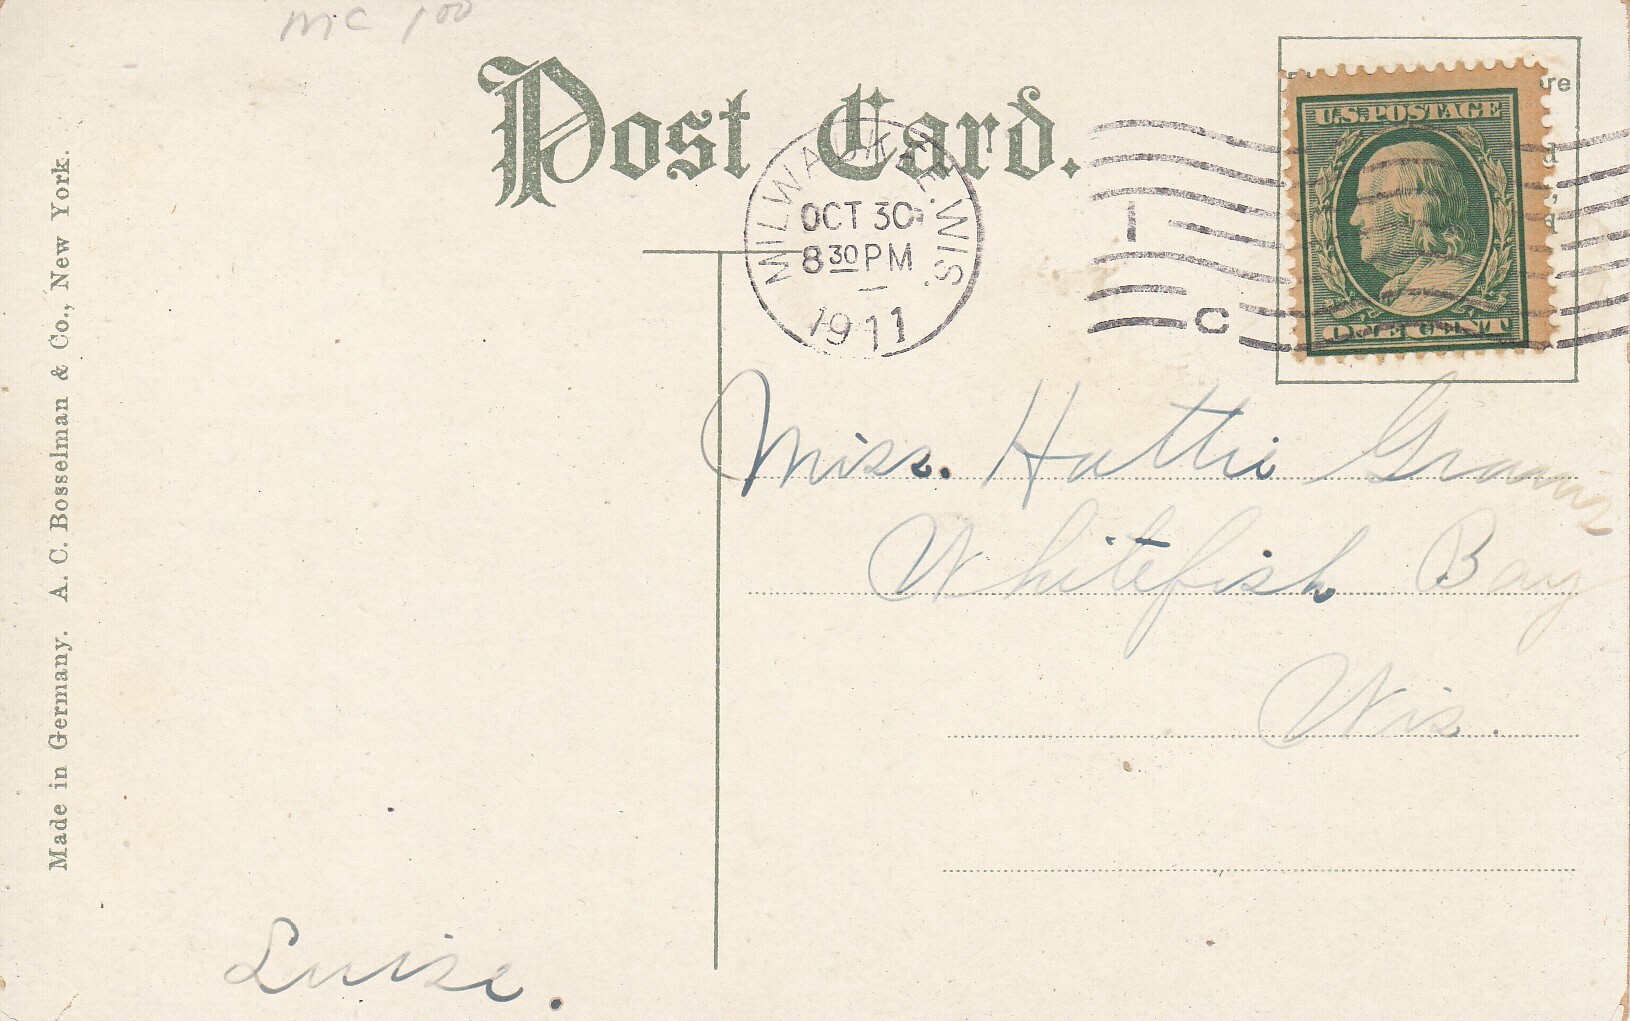 mc 100
Post Card.
MILWAUKEE. WIS.
OCT 30
8 30 PM
1911
1 C
U.S. POSTAGE
ONE CENT
Miss. Hattie
Whitefish Bay
Wis.
Luise.
Made in Germany. A. C. Bosselman & Co., New York.